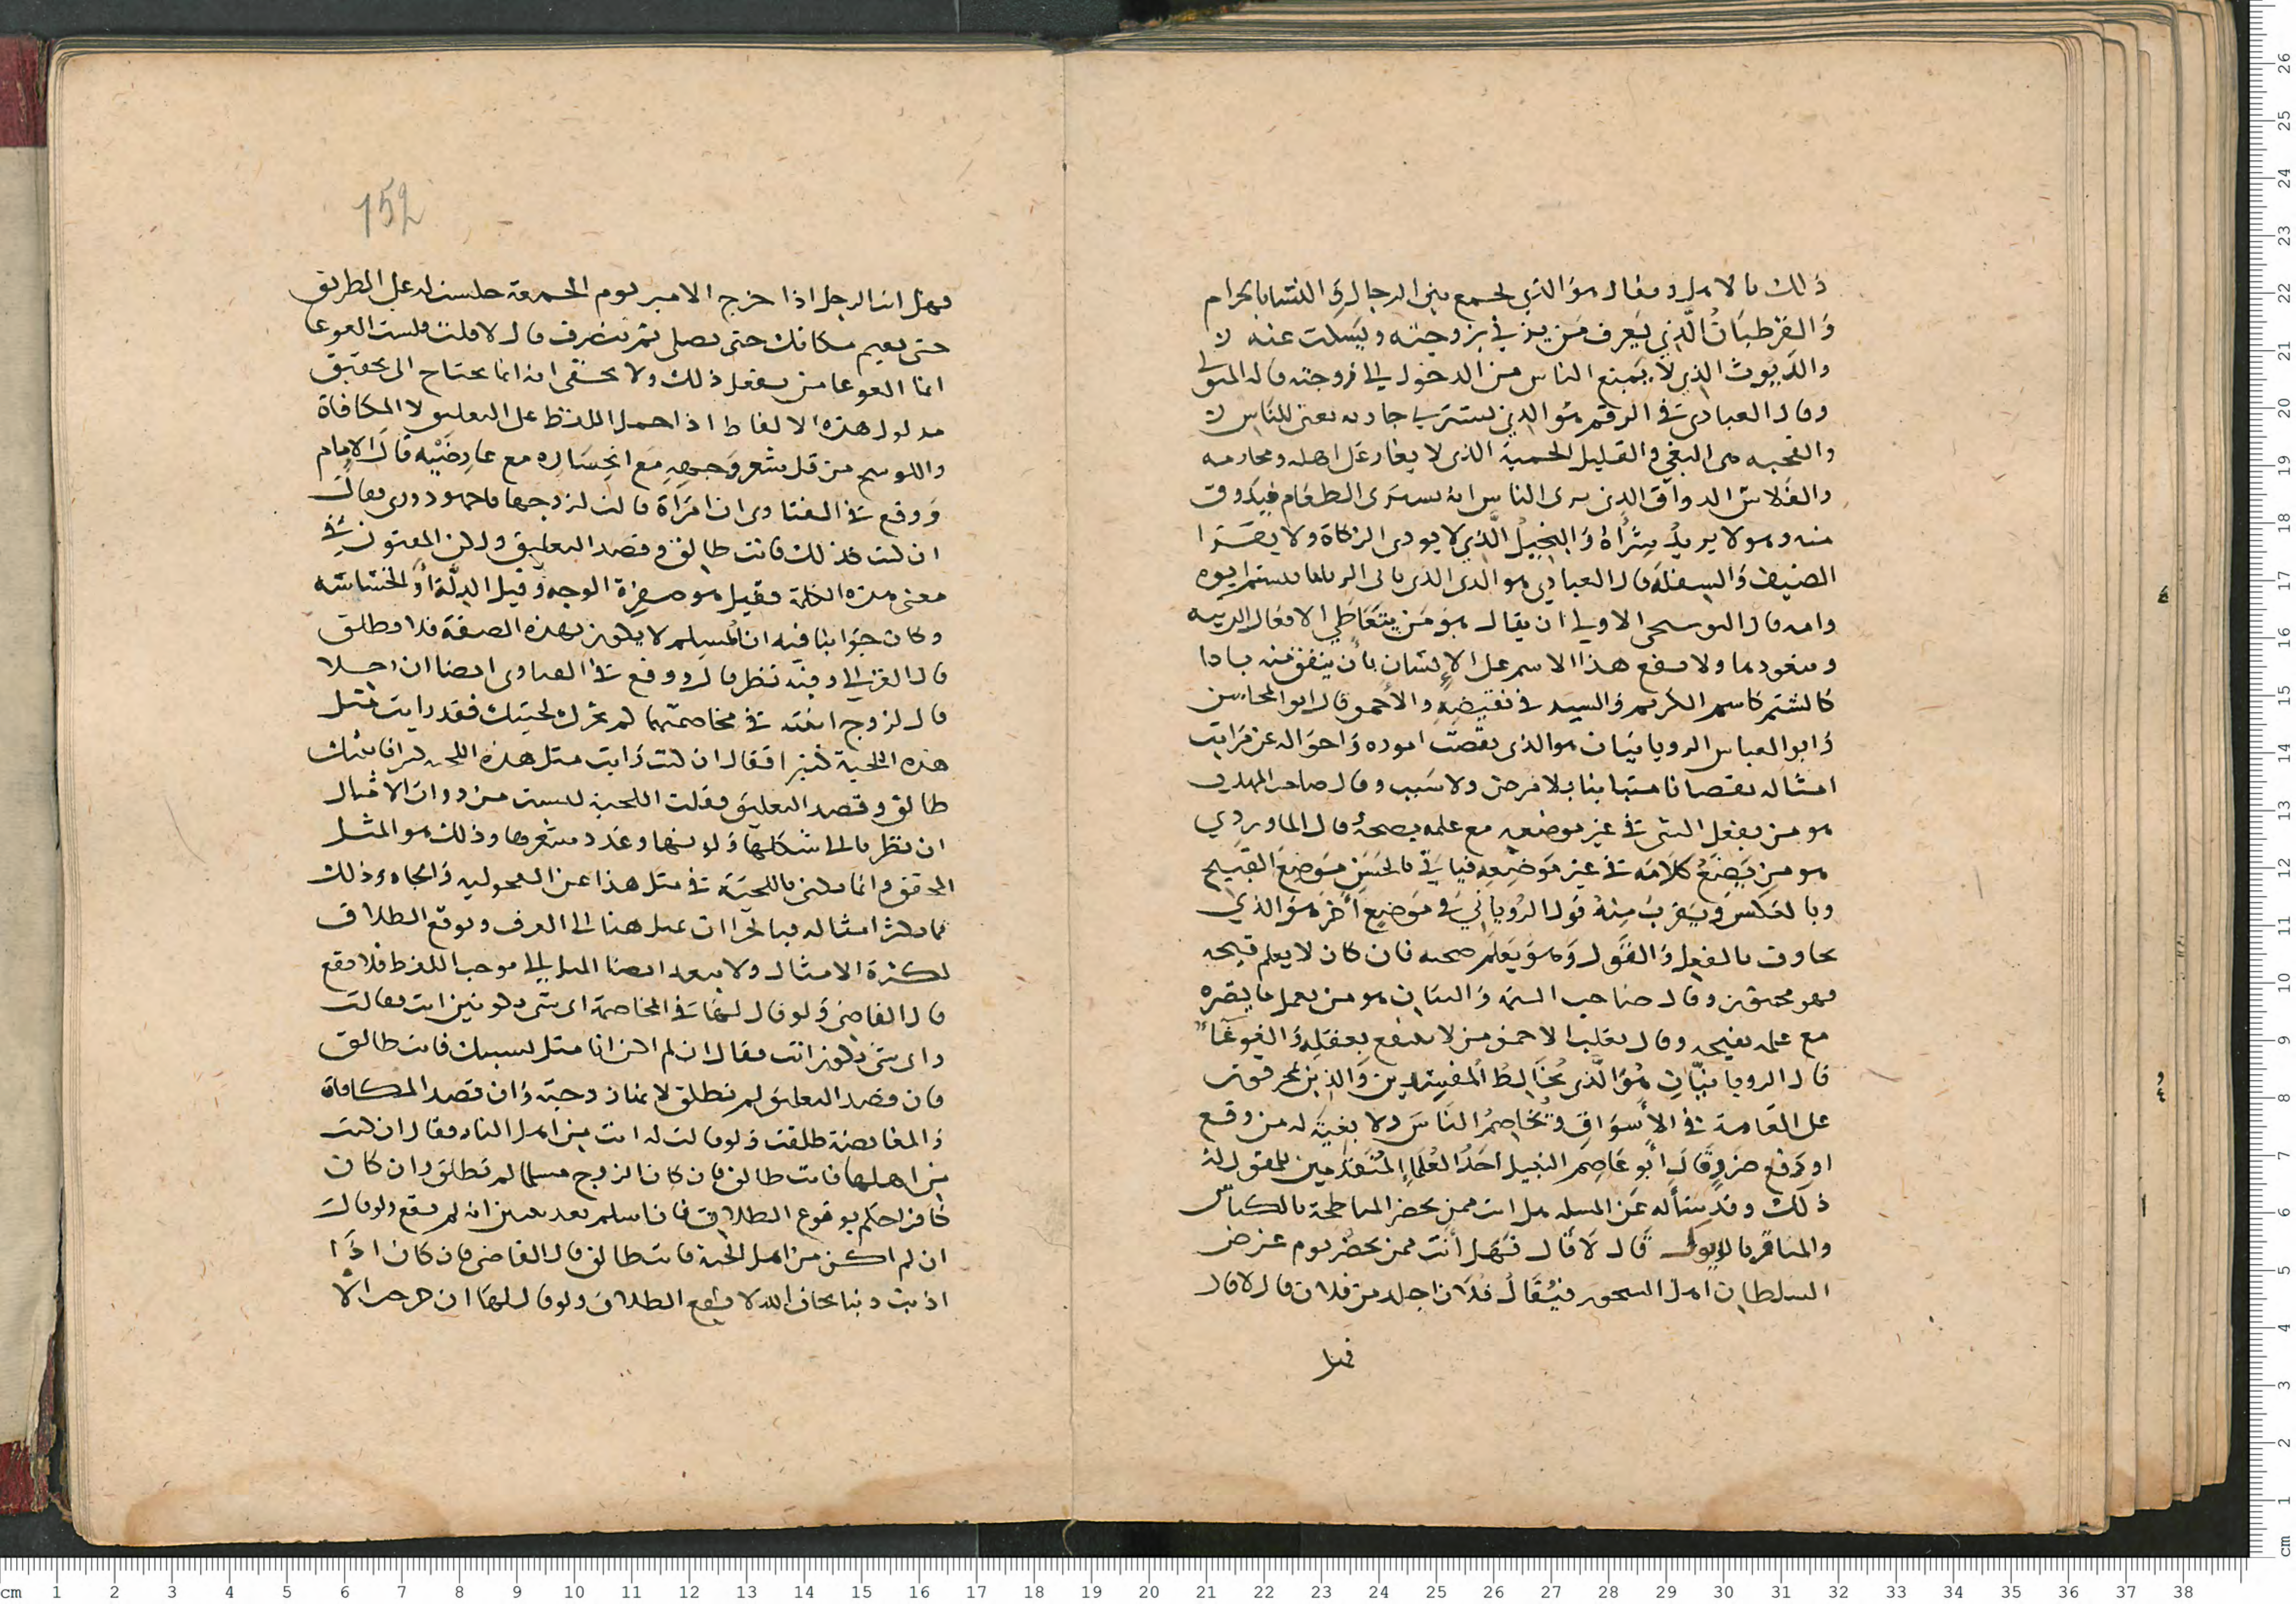 ذلك بالاهل ويقال هو الذي يجمع بين الرجال والنسا بالحرام
والقرطبان الذي يعرف من يزني بزوجته ويسكت عنه
والديوث الذي لا يمنع الناس من الدخول الى زوجته قاله المتولي
وقال العبادي في الرقم هو الذي يشتري جاريه تغني للناس
والقحبه هى البغي والقليل الحمية الذى لا يغار على اهله ومحارمه
والقلاش الدواق الذى يرى الناس انه يشترى الطعام فيذوق
منه وهو لا يريد شراه والبخيل الذي لا يودى الزكاة ولا
الضيف والسفلة قال العبادي هو الذى
وامه قال البوسحى الاولى ان يقال هو من يتعاطي الافعال الدنيه
ويتعودها ولا يقع هذا الاسم على الإنسان بأن يتفق منه نادرا
كالشتم كاسم الكريم والسيد في نقيضه والاحمق قال ابو المحاسن
وابو العباس الرويانيان هو الذى نقصت اموره واحواله عن مراتب
امثاله نقصانا متباينا بلا مرض ولا سبب وقال صاحب المهذب
هو من يفعل الشى في غير موضعه مع علمه بقبحه قال الماوردي
هو من يضع كلامه في غير موضعه فياتي بالحسن موضع القبيح
وبالعكس ويقرب منه قول الروياني في موضع أخر هو الذي
بالفعل والقول وهو يعلم قبحه فان كان لا يعلم قبحه
فهو محمق وقال صاحب التتمة والبيان هو من يعمل ما يضره
مع علمه بقبحه وقال ثعلب الاحمق من لا ينتفع بعقله والغوغآء
قال الرويانيان هو الذى يخالط المفسدين والذين
على العامة في الأسواق ويخاصم الناس ولا بغية له من وقع
او وقع وقال ابو عاصم النبيل احد العلماء المتقدمين للمقول له
ذلك وقد سأله عن المسله هل انت ممن يحضر المناطحة بالكباش
والمناقره بالديوك قال لا قال فهل أنت ممن يحضر يوم عرض
السلطان اهل السجون فيقال فلان اجلد من فلان قال لا قال
فهل
152
فهل انت الرجل اذا خرج الامير يوم الجمعة جلست له على الطريق
حتى تقيم مكانك حتى يصلي ثم ينصرف قال لا قلت فلست الغوغا
انما الغوغا من يفعل ذلك ولا يخفى انه انما يحتاج الى تحقيق
مدلول هذه الالفاظ اذا حمل اللفظ على التعليق لا المكافاة
والكوسج من قل شعر وجهه مع انحسار ه مع عارضيه قال الإمام
ووقع في الفتاوى ان امراة قالت لزوجها فقال
ان كنت كذلك فانت طالق وقصد التعليق وذكر المفتون في
معنى هذه الكلمة فقيل هو صفرة الوجه وقيل الذلة أو الخساسة
وكان جوابنا فيه ان المسلم لا يكون بهذه الصفة فلا وطلق
قال الغزالي وفيه نظر قال ووقع في الفتاوى ايضا ان رجلا
قال لزوج ابنته في مخاصمتهما لم تحرك لحيتك فقد رايت مثل
هذه اللحية كثيرا فقال ان كنت رايت مثل هذه اللحيه كثيرا فابنتك
طالق وقصد التعليق فقلت اللحية ليست من ذوات الامثال
ان نظر نا الى شكلها ولونها وعدد شعرها وذلك هو المثل
المحقق وانما يكنى باللحية في مثل هذا عن الفحولية والجاه وذلك
مما يكثر امثاله فيا تحرا ان عمل هنا الى العرف ويوقع الطلاق
لكثرة الامثال ولا يبعد ايضا الميل الى موجب اللفظ فلا يقع
قال القاضى ولو قال لها في المخاصمة اي شى تكونين انت فقالت
واى شى تكون انت فقال ان لم اكن انا مثل لسببك فانت طالق
فان قصد التعليق لم تطلق لانها زوجته وان قصد المكافاة
والمغايضة طلقت ولو قالت له انت من اهل النار فقال ان كنت
من اهلها فانت طالق فان كان الزوج مسلما لم تطلق وان كان
كافرا حكم بوقوع الطلاق فان اسلم بعد تبين انه لم يقع ولو قال
ان لم اكن من اهل الجنة فانت طالق قال القاضى فان كان اذا
اذنب ذنبا يخاف الله لا يقع الطلاق ولو قال لها ان خرجت الا